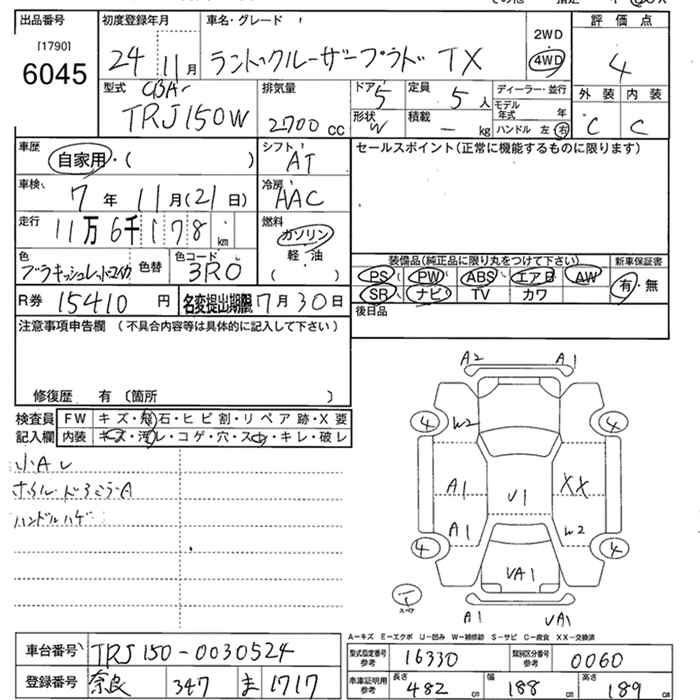 出品番号 初度登録年月 車名・グレード 2WD 評価点
[1790] 6045 24 11月 ランドクルーザープラド TX 4WD 4
外装 内装
C C
型式 CBA- TRJ150W 排気量 2700cc ドア 5 定員 5人 ディーラー・並行
形状 W 積載 - kg モデル年式 年
ハンドル 左 右
車歴 自家用・( ) シフト AT セールスポイント(正常に機能するものに限ります)
車検 7年11月(21日) 冷房 AAC
走行 11万6千178km 燃料 ガソリン 軽・油 ( )
色 色替 色コード 3R0
装備品(純正品に限り丸をつけて下さい) 新車保証書
PS PW ABS エアB AW 有・無
SR ナビ TV カワ
R券 15410円 名変提出期限 7月30日 後日品
注意事項申告欄(不具合内容等は具体的に記入して下さい)
修復歴 有 〔箇所 〕
検査員 FW キズ・飛石・ヒビ割・リペア跡・X要
記入欄 内装 キズ・汚レ・コゲ・穴・スレ・キレ・破レ
小Aし
ハンドルハゲ
A2 A1
4 W2 4
A1 U1 XX
A1 W2
4 4
UA1
スペア A1 UA1
A-キズ E-エクボ U-凹み W-補修跡 S-サビ C-腐食 XX-交換済
車台番号 TRJ150-0030524 型式指定番号参考 16330 類別区分番号参考 0060
登録番号 奈良 347 ま 1717 車庫証明用参考 長さ 482cm 幅 188cm 高さ 189cm